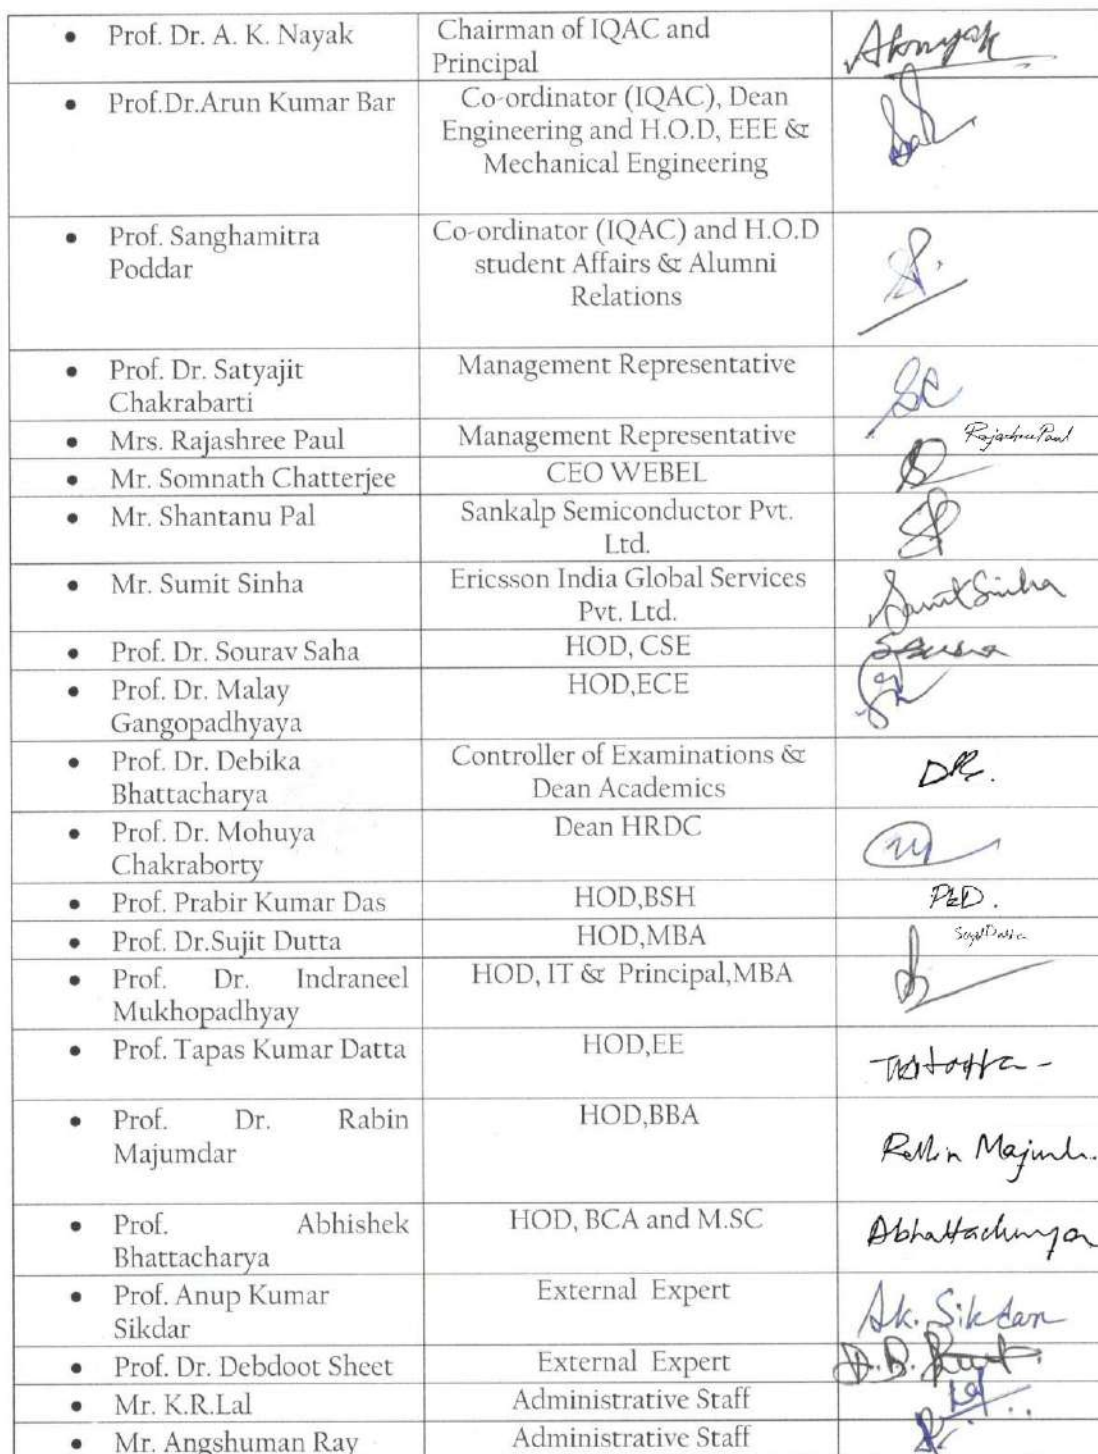 • Prof. Dr. A. K. Nayak
Chairman of IQAC and
Principal
Aknayak
• Prof.Dr.Arun Kumar Bar
Co-ordinator (IQAC), Dean
Engineering and H.O.D, EEE &
Mechanical Engineering
• Prof. Sanghamitra
Poddar
Co-ordinator (IQAC) and H.O.D
student Affairs & Alumni
Relations
• Prof. Dr. Satyajit
Chakrabarti
Management Representative
SC
• Mrs. Rajashree Paul
Management Representative
Rajashree Paul
• Mr. Somnath Chatterjee
CEO WEBEL
• Mr. Shantanu Pal
Sankalp Semiconductor Pvt.
Ltd.
• Mr. Sumit Sinha
Ericsson India Global Services
Pvt. Ltd.
Sumit Sinha
• Prof. Dr. Sourav Saha
HOD, CSE
• Prof. Dr. Malay
Gangopadhyaya
HOD,ECE
• Prof. Dr. Debika
Bhattacharya
Controller of Examinations &
Dean Academics
• Prof. Dr. Mohuya
Chakraborty
Dean HRDC
• Prof. Prabir Kumar Das
HOD,BSH
PKD.
• Prof. Dr.Sujit Dutta
HOD,MBA
Sujit Dutta
• Prof. Dr. Indraneel
Mukhopadhyay
HOD, IT & Principal,MBA
• Prof. Tapas Kumar Datta
HOD,EE
• Prof. Dr. Rabin
Majumdar
HOD,BBA
• Prof. Abhishek
Bhattacharya
HOD, BCA and M.SC
Abhattacharya
• Prof. Anup Kumar
Sikdar
External Expert
Ak. Sikdar
• Prof. Dr. Debdoot Sheet
External Expert
• Mr. K.R.Lal
Administrative Staff
• Mr. Angshuman Ray
Administrative Staff